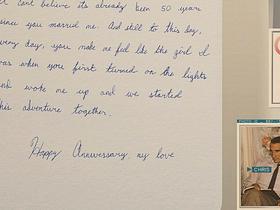 I can't believe its already been 50 years
since you married me. And still to this day,
every day, you make me feel like the girl I
was when you first turned on the lights
and woke me up and we started
this adventure together.
Happy Anniversary, my love
CHRIS